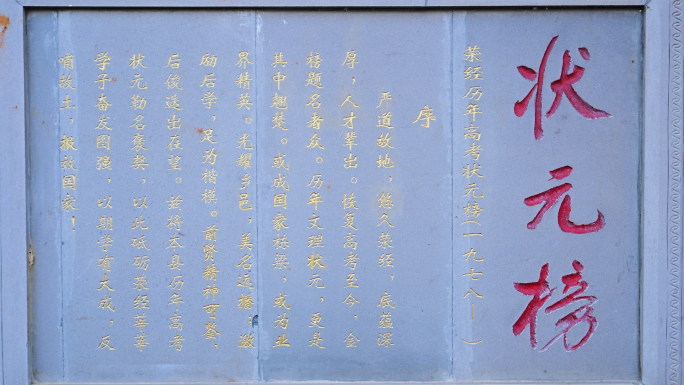 状元榜
荥经历年高考状元榜(一九七八— )
序
严道故地，悠久荥经，底蕴深
厚，人才辈出。恢复高考至今，金
榜题名者众。历年文理状元，更是
其中翘楚。或成国家栋梁，或为业
界精英。光耀乡邑，美名远播，激
励后学，足为楷模。前贤精神可鉴，
后俊迭出在望。兹将本县历年高考
状元勒名褒奖，以此砥砺荥经莘莘
学子奋发图强，以期学有大成，反
哺故土，报效国家！